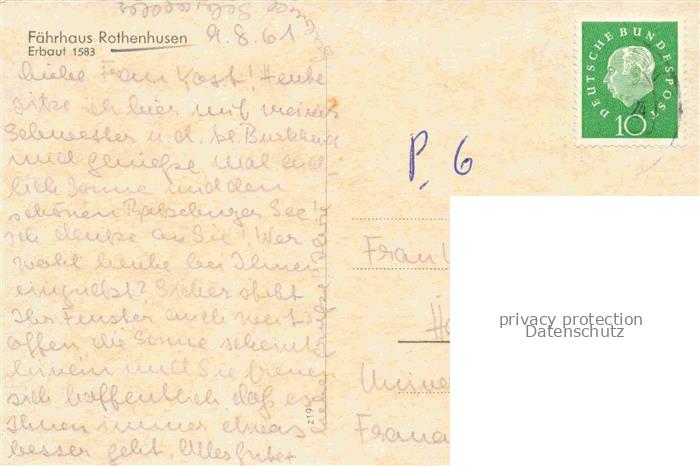 Fährhaus Rothenhusen
Erbaut 1583
9.8.61
Liebe Frau Kast! Heute
sitze ich hier mit meiner
Schwester u. d. kl. Burkhard
und genieße mal end-
lich Sonne und den
schönen Ratzeburger See!
Ich denke an Sie! Wer
wohl heute bei Ihnen
einguckt? Sicher steht
Ihr Fenster auch weit
offen die Sonne scheint
hinein und Sie freuen
sich hoffentlich daß es
Ihnen immer etwas
besser geht. Alles Gute
DEUTSCHE BUNDESPOST
10
P. 6
Frau
privacy protection
Datenschutz